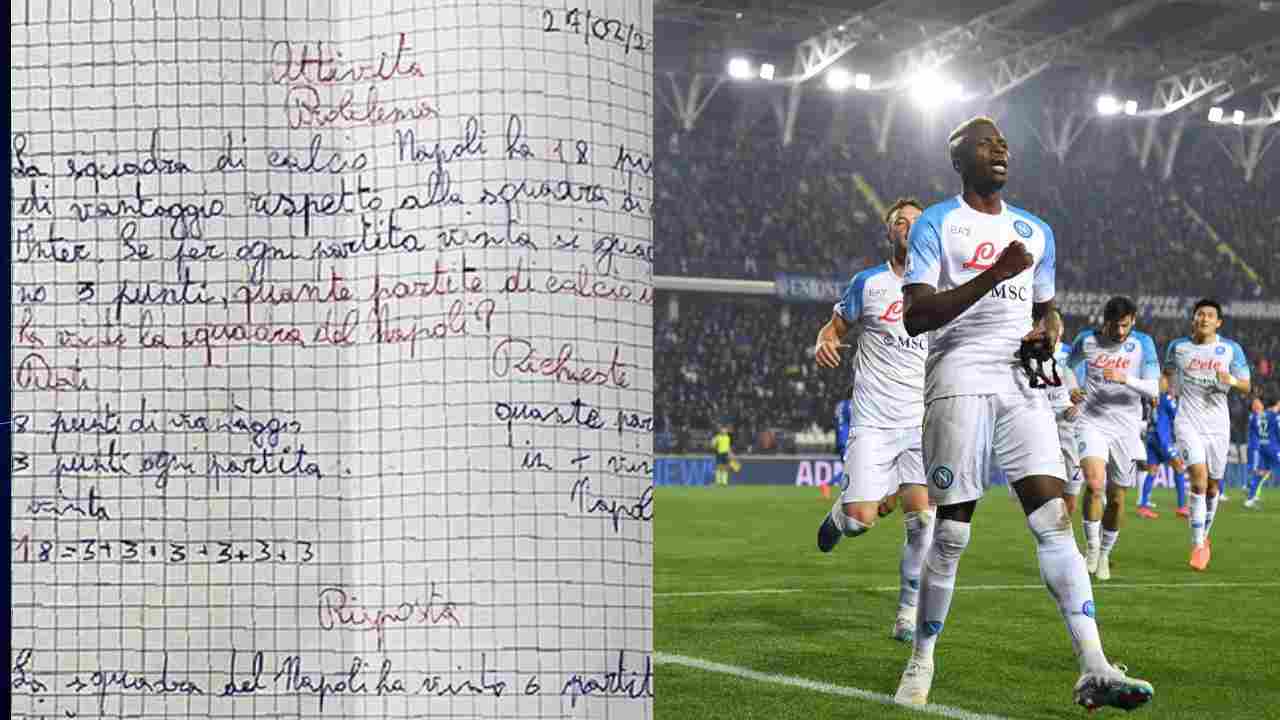 27/02/2
Attività
Problema
La squadra di calcio Napoli ha 18 pu
di vantaggio rispetto alla squadra di
Inter. Se per ogni partita vinta si guad
no 3 punti, quante partite di calcio i
ha vinto la squadra del Napoli?
Dati
Richieste
8 punti di vantaggio
quante par
3 punti ogni partita.
in + vin
vinta
Napol
18=3+3+3+3+3+3
Risposta
La squadra del Napoli ha vinto 6 partit
EBAY
Lete
MSC
EBAY
MSC
Lete
Lete